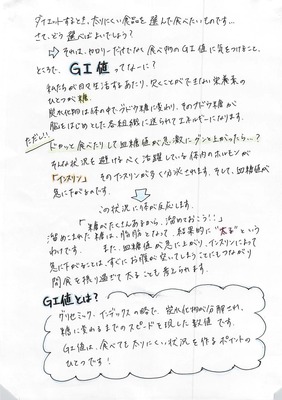 ダイエットするとき、太りにくい食品を選んで食べたいものです…
さて、どう選べばよいでしょう?
→ それは、カロリーだけでなく食べ物のGI値に気をつけること。
ところで、GI値ってなーに?
私たちが日々生活するあたり、欠くことができない栄養素の
ひとつが糖。
炭水化物は体の中でブドウ糖に変わり、そのブドウ糖が
脳をはじめとした各組織に送られてエネルギーになります。
ただし、
ドカッと食べたりして血糖値が急激にグンと上がったら…?
そんな状況を避けるべく活躍している体内のホルモンが
「インスリン」 そのインスリンが多く分泌されます。そして、血糖値が
急に下がるのです。
この状況に体が反応します。
「糖がたくさんあるから、溜めておこう!!」
溜めこまれた糖は、脂肪となって、結果的に"太る"という
わけです。 また、血糖値が急に上がり、インスリンによって
急に下がることは、すぐにお腹が空いてしまうことにもつながり
間食を摂り過ぎて太ることも考えられます。
GI値とは?
グリセミック・インデックスの略で、炭水化物が分解され、
糖に変わるまでのスピードを現した数値です。
GI値は、食べても太りにくい状況を作るポイントの
ひとつです!